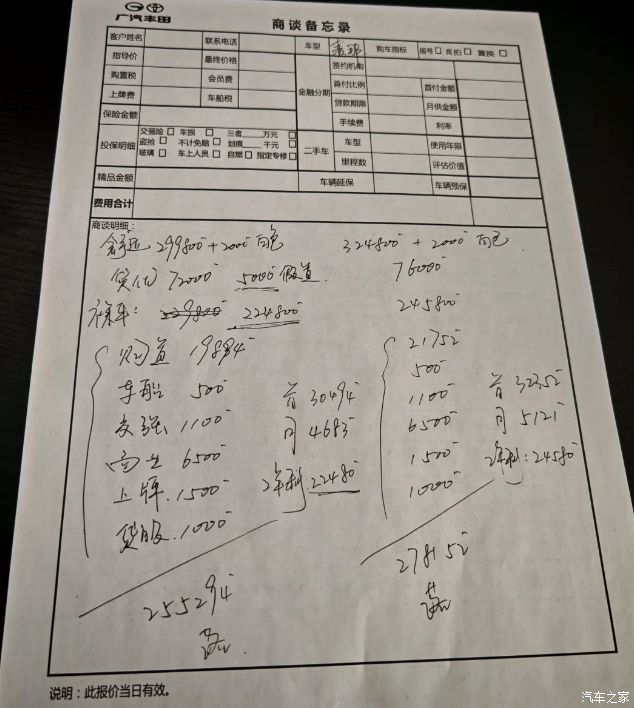 广汽丰田
商谈备忘录
客户姓名 联系电话 车型 购车指标 摇号 竞拍 置换
指导价 最终价格 金融分期 签约机构
购置税 会员费 首付比例 首付金额
上牌费 车船税 贷款期限 月供金额
保险金额 手续费 利率
投保明细 交强险 车损 三者 万元 二手车 车型 使用年限
盗抢 不计免赔 划痕 千元
玻璃 车上人员 自燃 指定专修 里程数 评估价值
精品金额 车辆延保 车辆预保
费用合计
商谈明细:
舒适 299800+2000白色 324800+2000白色
贷优 72000 5000 76000
裸车: 229800 224800 245800
购置 19894 21752
车船 500 500
交强 1100 首30494 1100 首32352
商业 6500 月4683 6500 月5121
上牌 1500 2年利 22480 1500 2年利:24580
贷服 1000 1000
255294 278152
说明:此报价当日有效。
汽车之家